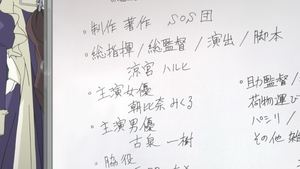 ・制作著作 SOS団
・総指揮/総監督/演出/脚本
涼宮ハルヒ
・主演女優
朝比奈みくる
・主演男優
古泉一樹
・脇役
・助監督
荷物運び
パシリ/
その他